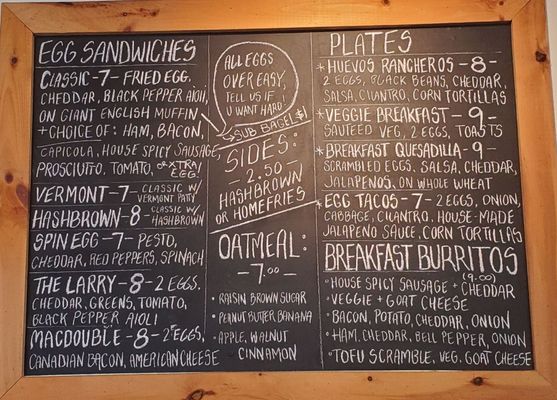 EGG SANDWICHES
CLASSIC -7- FRIED EGG,
CHEDDAR, BLACK PEPPER AIOLI,
ON GIANT ENGLISH MUFFIN
+ CHOICE OF: HAM, BACON,
CAPICOLA, HOUSE SPICY SAUSAGE,
PROSCIUTTO, TOMATO, OR XTRA EGG.
VERMONT -7- CLASSIC W/ VERMONT PATTY
HASHBROWN -8- CLASSIC W/ HASHBROWN
SPIN EGG -7- PESTO,
CHEDDAR, RED PEPPERS, SPINACH
THE LARRY -8- 2 EGGS,
CHEDDAR, GREENS, TOMATO,
BLACK PEPPER AIOLI
MACDOUBLE -8- 2 EGGS,
CANADIAN BACON, AMERICAN CHEESE
ALL EGGS
OVER EASY,
TELL US IF
U WANT HARD!
SUB BAGEL $1
SIDES:
- 2.50 -
HASHBROWN
OR HOMEFRIES
OATMEAL:
- 7.00 -
• RAISIN BROWN SUGAR
• PEANUT BUTTER BANANA
• APPLE, WALNUT
CINNAMON
PLATES
* HUEVOS RANCHEROS -8-
2 EGGS, BLACK BEANS, CHEDDAR,
SALSA, CILANTRO, CORN TORTILLAS
* VEGGIE BREAKFAST -9-
SAUTEED VEG, 2 EGGS, TOASTS
* BREAKFAST QUESADILLA -9-
SCRAMBLED EGGS, SALSA, CHEDDAR,
JALAPENOS, ON WHOLE WHEAT
* EGG TACOS -7- 2 EGGS, ONION,
CABBAGE, CILANTRO, HOUSE-MADE
JALAPENO SAUCE, CORN TORTILLAS
BREAKFAST BURRITOS
(9.00)
• HOUSE SPICY SAUSAGE + CHEDDAR
• VEGGIE + GOAT CHEESE
• BACON, POTATO, CHEDDAR, ONION
• HAM, CHEDDAR, BELL PEPPER, ONION
• TOFU SCRAMBLE, VEG, GOAT CHEESE